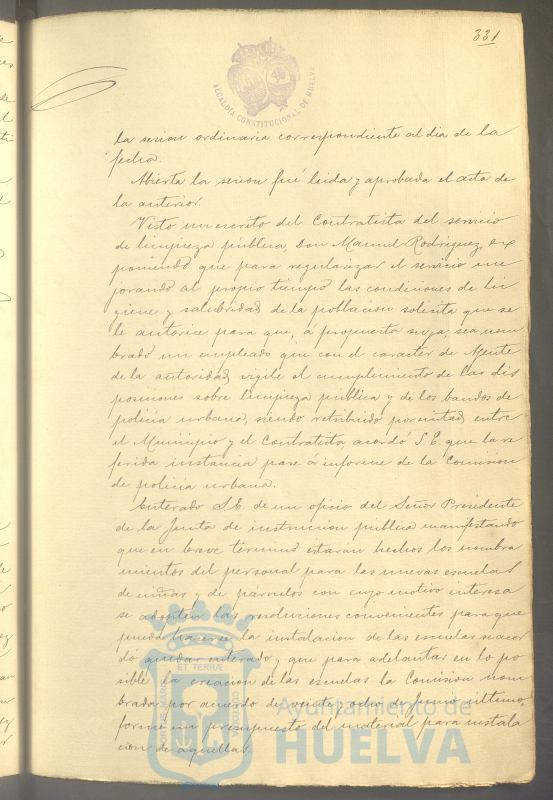 331
ALCALDÍA CONSTITUCIONAL DE HUELVA
la sesion ordinaria correspondiente al dia de la
fecha.
Abierta la sesion fué leida y aprobada el acta de
la anterior.
Visto un escrito del Contratista del servicio
de limpieza pública, Don Manuel Rodriguez, ex
poniendo que para regularizar el servicio me
jorando al propio tiempo las condiciones de hi
giene y salubridad de la poblacion solicita que se
le autorice para que, á propuesta suya, sea nom
brado un empleado que con el caracter de Agente
de la autoridad vigile el cumplimiento de las dis
posiciones sobre limpieza pública y de los bandos de
policia urbana, siendo retribuido por mitad entre
el Municipio y el Contratista, acordó S.E. que la re
ferida instancia pase á informe de la Comision
de policia urbana.
Enterado S.E. de un oficio del Señor Presidente
de la Junta de instruccion pública manifestando
que en breve término estarán hechos los nombra
mientos del personal para las nuevas escuelas
de niñas y de párvulos con cuyo motivo interesa
se adopten las resoluciones convenientes para que
pueda hacerse la instalacion de las escuelas se acor
dó quedar enterado y que para adelantar en lo po
sible la creacion de las escuelas la Comision nom
brada por acuerdo de veinte y ocho de Junio último,
forme un presupuesto del material para instala
cion de aquellas.
PORTUS MARIS
ET TERRÆ
CUSTODIO
Ayuntamiento de
HUELVA